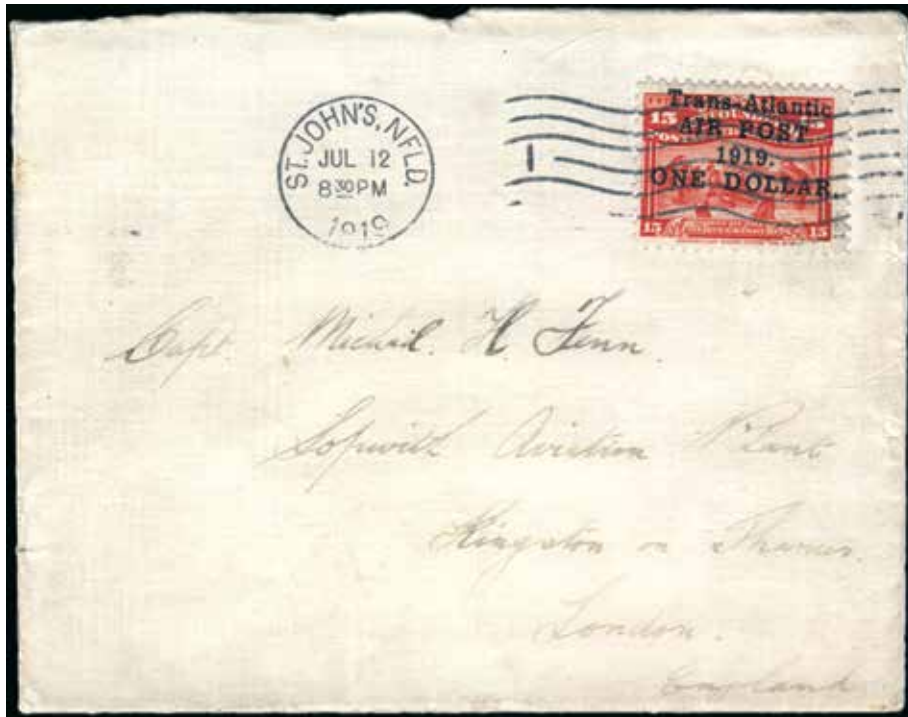 ST. JOHN'S, NFLD.
JUL 12
8 30 PM
1919
1
Trans-Atlantic
15
AIR POST.
1919.
ONE DOLLAR.
15 15
Capt. Michail. H. Fenn.
Sopwith Aviation Plant
Kingston on Thames.
London.
England